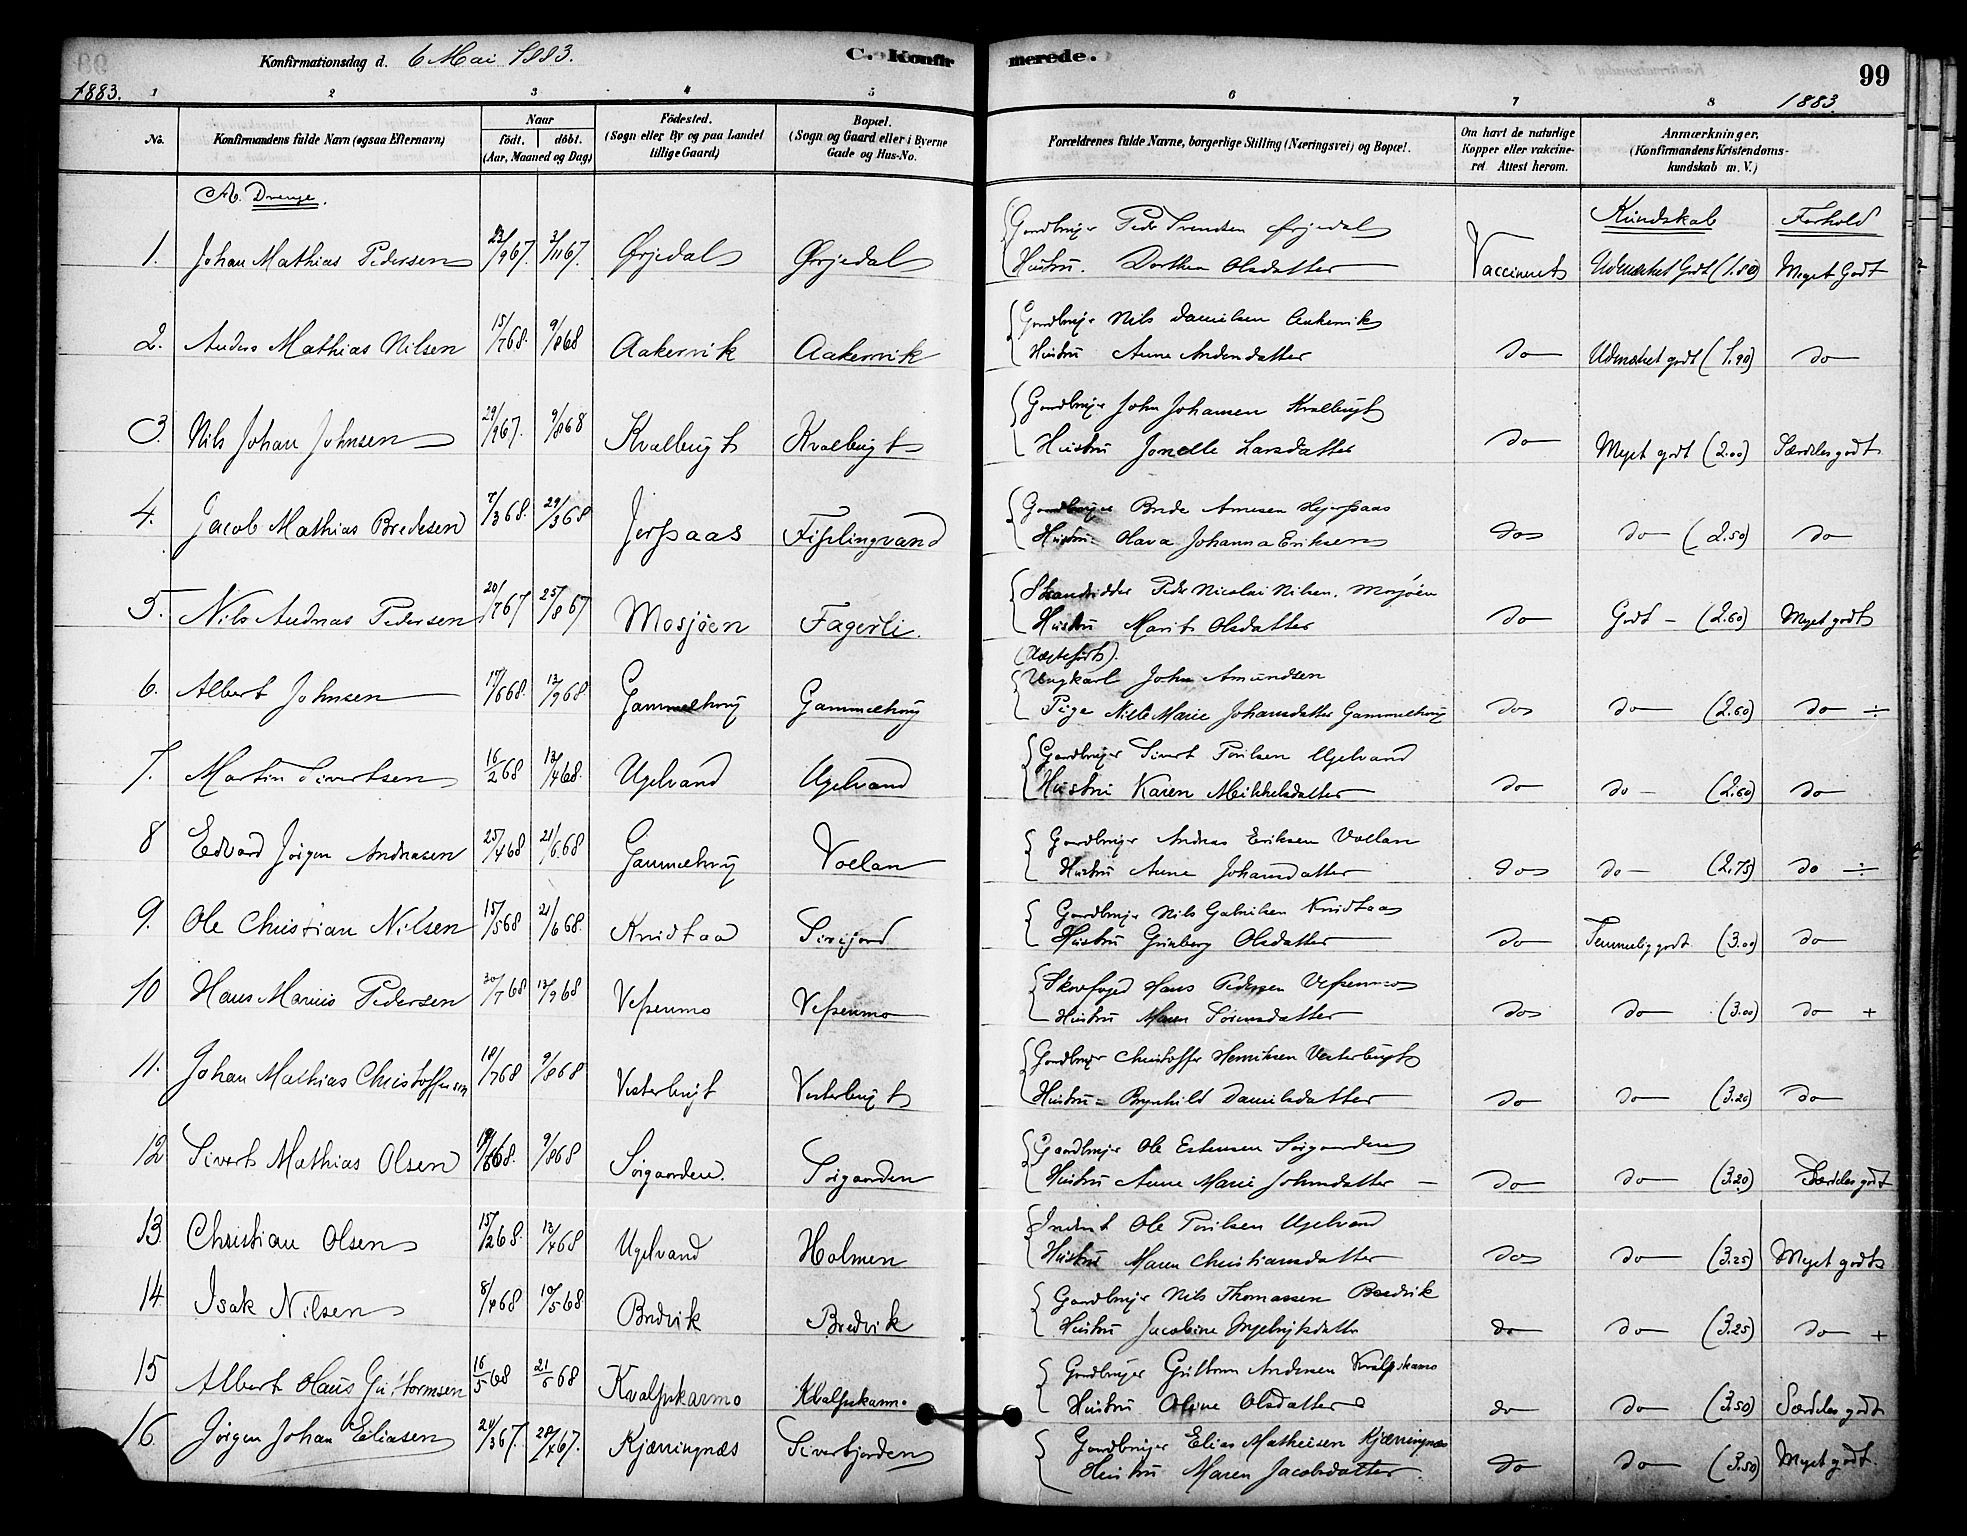 Konfirmationsdag d. 6 Mai 1883. C. Konfirmerede. 99
1883. 1 2 3 4 5 6 7 8 1883.
No. Konfirmandens fulde Navn (ogsaa Efternavn) Naar født. døbt. (Aar, Maaned og Dag) Födested. (Sogn eller By og paa Landet tillige Gaard) Bopæl. (Sogn og Gaard eller i Byerne Gade og Hus-No. Forældrenes fulde Navne, borgerlige Stilling (Næringsvei) og Bopæl. Om havt de naturlige Kopper eller vakcineret Attest herom. Anmærkninger. (Konfirmandens Kristendomskundskab m. V.)
A. Drenge. Kundskab Forhold
1. Johan Mathias Pedersen 23/9 67. 3/11 67. Ørjedal Ørjedal Gaardbruger Peder Svendsen Ørjedal
Hustru. Dorthea Olsdatter Vaccineret Udmærket Godt (1.80) Meget Godt
2. Anders Mathias Nilsen 15/7 68. 9/8 68 Aakervik Aakervik Gaardbruger Nils Danielsen Aakervik
Hustru Anne Andersdatter do Udmærket godt (1.90) do
3. Nils Johan Johnsen 29/9 67. 9/8 68 Kvalbugt Kvalbugt Gaardbruger John Johansen Kvalbugt
Hustru Jonelle Larsdatter do Meget godt (2.00) Særdeles godt
4. Jacob Mathias Bredesen 7/3 68. 29/3 68 Jerpaas Fiplingvand Gaardbruger Brede Arnesen Hjerpaas
Hustru Hava Johanna Eriksen do do (2.50) do
5. Nils Andreas Pedersen 20/7 67 25/8 67 Mosjøen Fagerli. Peder Nicolai Nilsen. Mosjøen
Hustru Marit Olsdatter do Godt (2.60) Meget godt
6. Albert Johnsen 17/6 68. 13/9 68 (Uægtefødt).
Ungkarl John Amundsen
Pige Nille Marie Johansdatter do do (2.60) do ÷
7. Martin Sivertsen 16/2 68 13/4 68. Ugelvand Ugelvand Gaardbruger Sivert Ugelvand
Hustru Karen Mikkelsdatter do do (2.60) do
8 Edvard Jørgen Andreasen 25/4 68 21/6 68 Vollan Gaardbruger Andreas Eriksen Vollan
Hustru Anne Johansdatter do do (2.75) do ÷
9. Ole Christian Nilsen 15/5 68 21/6 68. Gaardbruger Nils Gabrielsen
Hustru Olsdatter do Temmelig godt (3.00) do
10 Hans Marius Pedersen 30/7 68 13/9 68 Vefsenmo Vefsenmo Skovfoged Hans Pedersen Vefsenmo
Hustru Maren Sørensdatter do do (3.00) do +
11. Johan Mathias Christoffersen 18/7 68 9/8 68 Vesterbugt Vesterbugt Gaardbruger Christoffer Henriksen Vesterbugt
Hustru Brynhild Danielsdatter do do (3.20) do
12 Sivert Mathias Olsen 9/8 68 Sørgaarden. Sørgaarden Gaardbruger Ole Estensen Sørgaarden
Hustru Anne Marie Johnsdatter do do (3.20) Særdeles godt
13. Christian Olsen 15/2 68. 13/4 68 Ugelvand Holmen Inderst Ole Ugelvand
Hustru Maren Christiansdatter do do (3.25) Meget godt
14. Isak Nilsen 8/4 68 10/5 68 Bredvik Bredvik Gaardbruger Nils Thomassen Bredvik
Hustru Jacobine Ingebrigtsdatter do do (3.25) do +
15 Albert Olaus Guttormsen 16/5 68 21/6 68 Kvalpskarmo Kvalpskarmo Gaardbruger Guttorm Andersen Kvalpskarmo
Hustru Oline Olsdatter do do (3.50) Særdeles godt
16. Jørgen Johan Eliasen 24/3 67. 28/4 67. Kjærringnæs Sivertjorden Gaardbruger Elias Matheisen Kjærringnæs
Hustru Maren Jacobsdatter. do do (3.50) Meget godt.